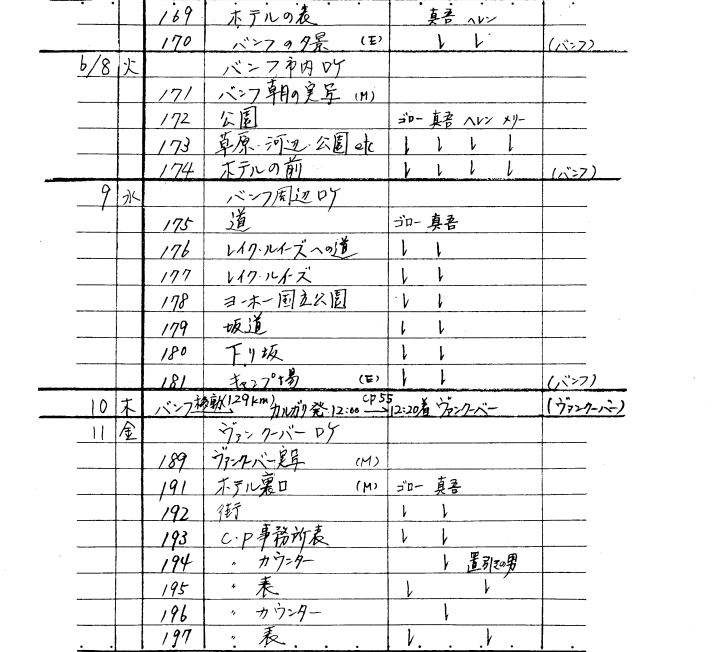 169 ホテルの表 真吾 ヘレン
170 バンフの夕景 (E) 〃 〃 (バンフ)
6/8 火 バンフ市内ロケ
171 バンフ朝の実写 (M)
172 公園 ゴロー 真吾 ヘレン メリー
173 草原・河辺・公園etc 〃 〃 〃 〃
174 ホテルの前 〃 〃 〃 〃 (バンフ)
9 水 バンフ周辺ロケ
175 道 ゴロー 真吾
176 レイク・ルイーズへの道 〃 〃
177 レイク・ルイーズ 〃 〃
178 ヨーホー国立公園 〃 〃
179 坂道 〃 〃
180 下り坂 〃 〃
181 キャンプ場 (E) 〃 〃 (バンフ)
10 木 バンフ移動(129km) カルガリ発・12:00 CP55→12:20着 ヴァンクーバー (ヴァンクーバー)
11 金 ヴァンクーバーロケ
189 ヴァンクーバー実写 (M)
191 ホテル裏口 (M) ゴロー 真吾
192 街 〃 〃
193 C・P事務所表 〃 〃
194 〃 カウンター 〃 置引きの男
195 〃 表 〃 〃
196 〃 カウンター 〃
197 〃 表 〃 〃